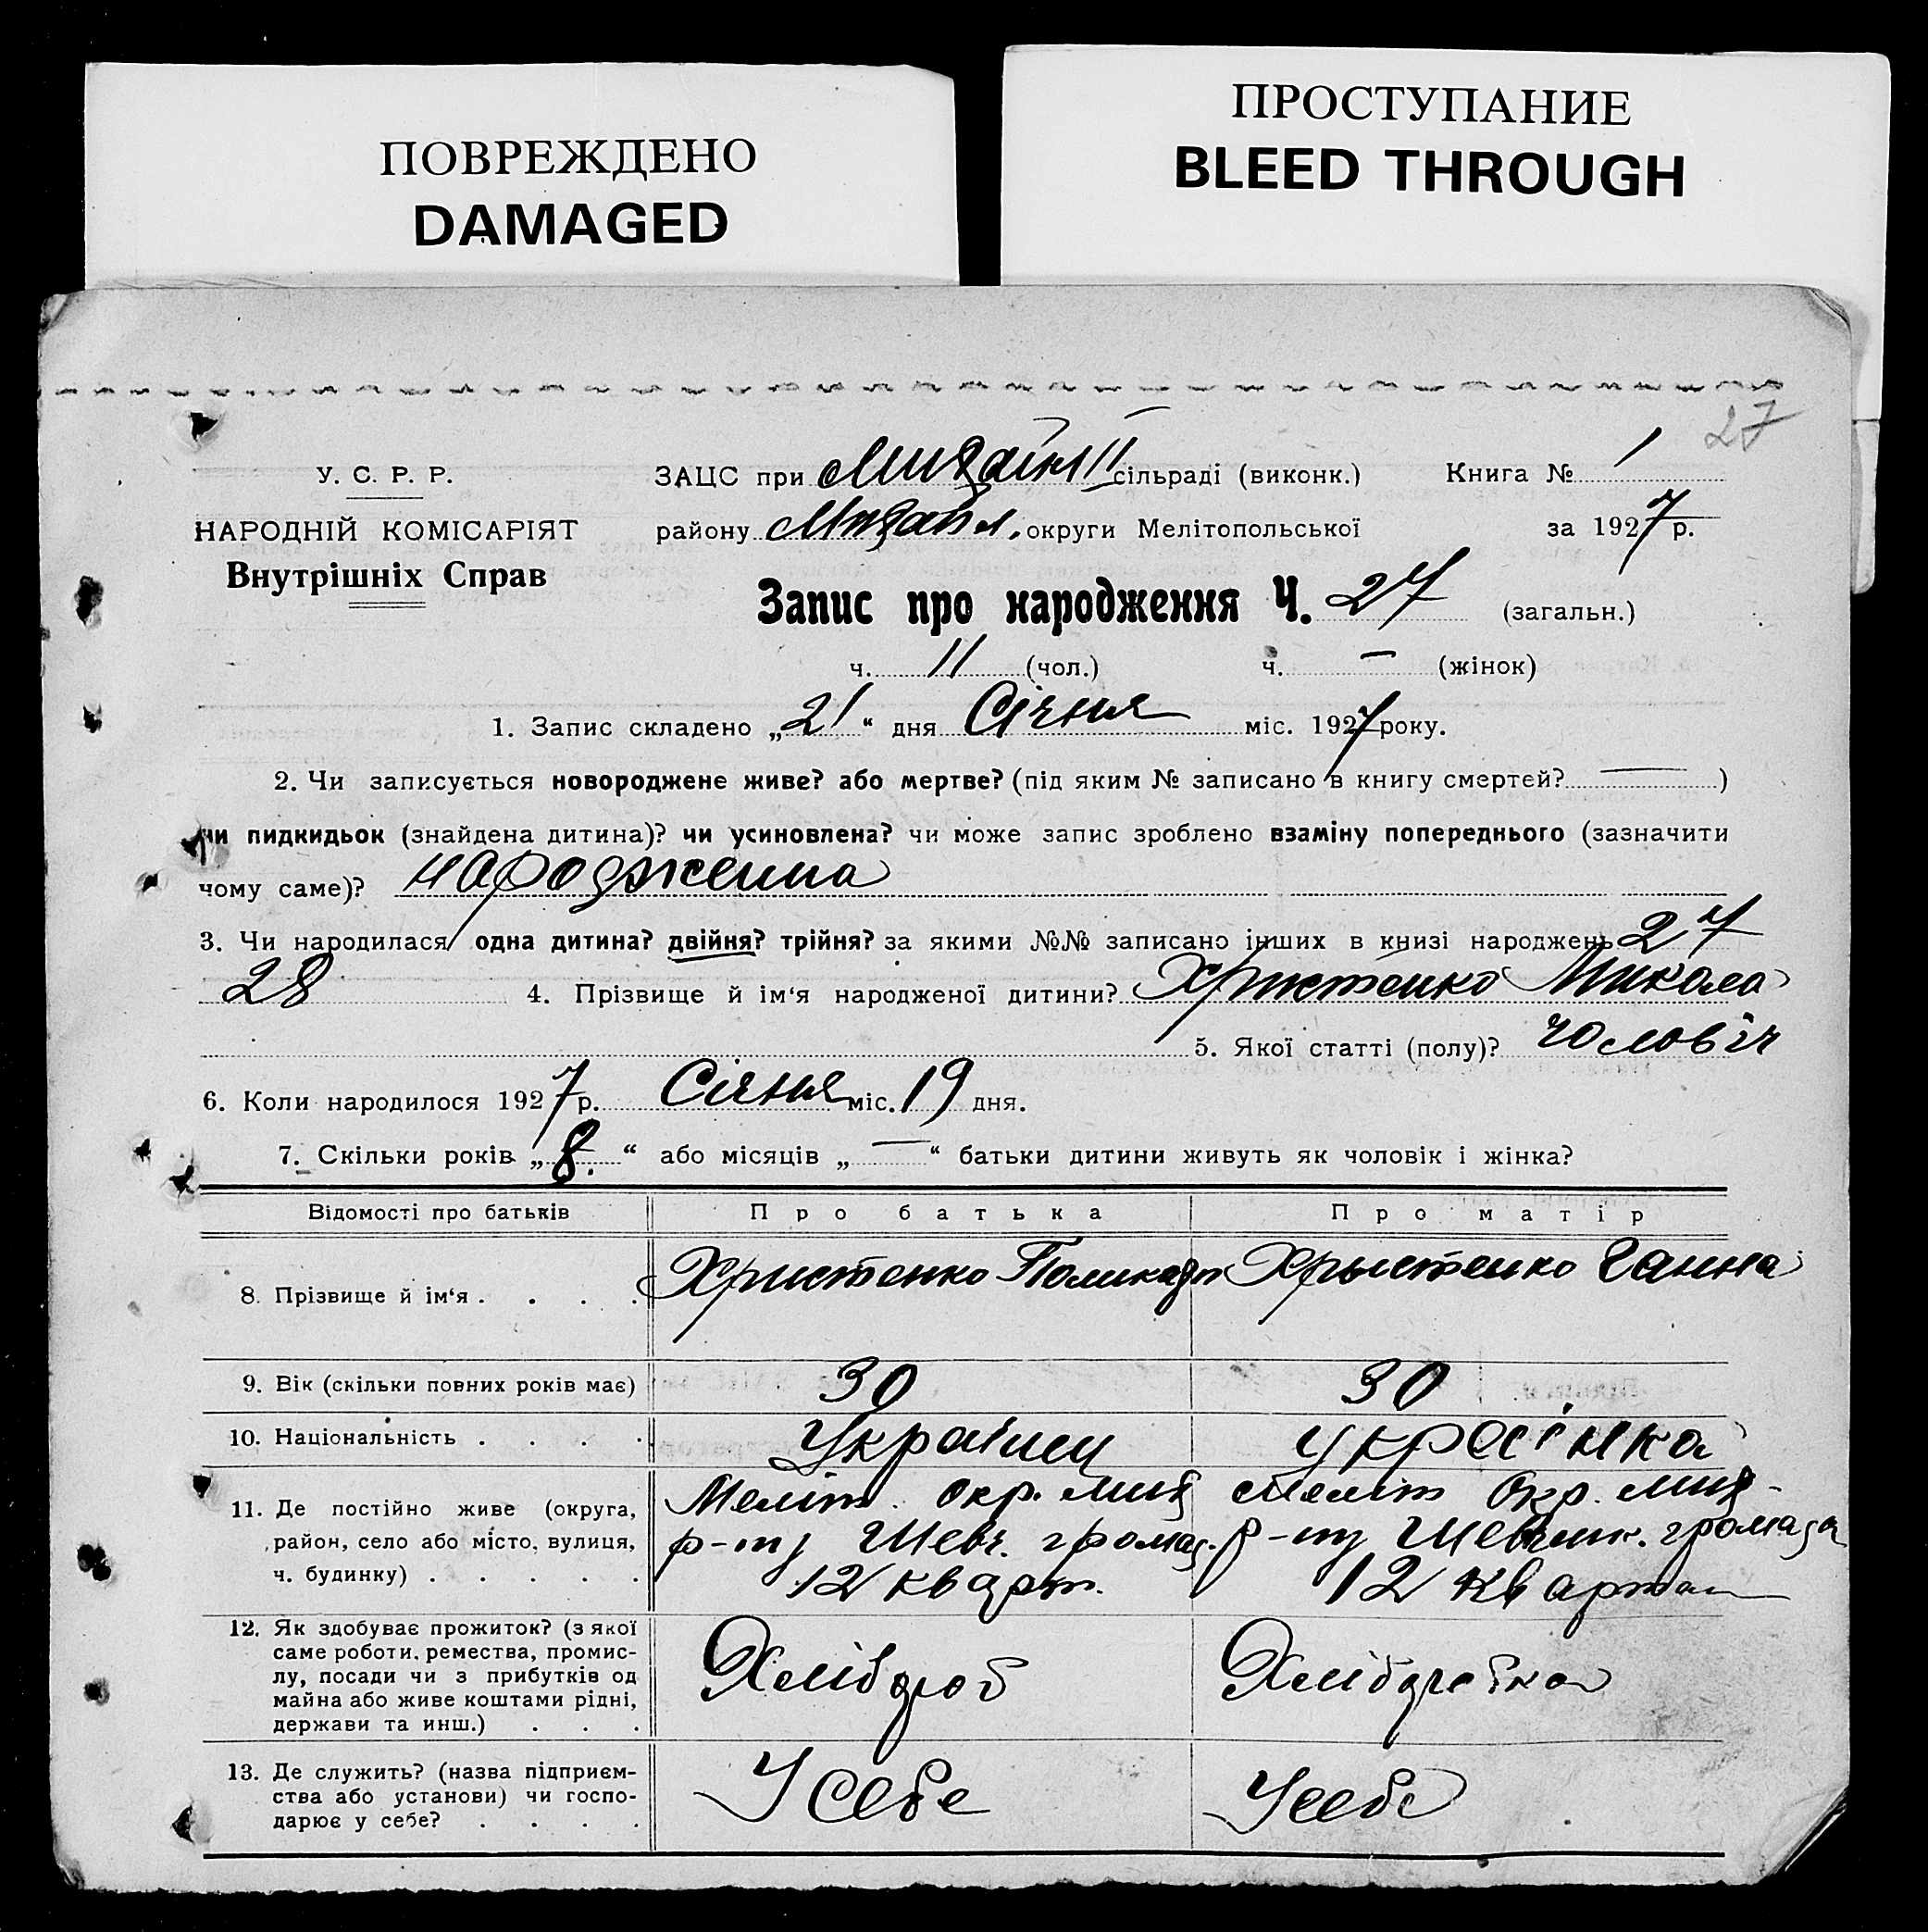 ПОВРЕЖДЕНО
DAMAGED
ПРОСТУПАНИЕ
BLEED THROUGH
27
У. С. Р. Р.
НАРОДНІЙ КОМІСАРІЯТ
Внутрішніх Справ
ЗАЦС при Михайл II сільраді (виконк.) Книга № 1
району Михайл. округи Мелітопольської за 1927 р.
Запис про народження Ч. 27 (загальн.)
ч. 11 (чол.) ч. — (жінок)
1. Запис складено „21“ дня Січня міс. 1927 року.
2. Чи записується новороджене живе? або мертве? (під яким № записано в книгу смертей? — )
чи пидкидьок (знайдена дитина)? чи усиновлена? чи може запис зроблено взаміну попереднього (зазначити
чому саме)? народженна
3. Чи народилася одна дитина? двійня? трійня? за якими №№ записано інших в книзі народжень 27
28 4. Прізвище й ім‘я народженої дитини? Христенко Микола
5. Якої статті (полу)? чоловіч
6. Коли народилося 1927 р. Січня міс. 19 дня.
7. Скільки років „8.“ або місяців „—“ батьки дитини живуть як чоловік і жінка?
Відомості про батьків Про батька Про матір
8. Прізвище й ім‘я . . . . Христенко Поликарп Хрыстенко Ганна
9. Вік (скільки повних років має) 30 30
10. Національність . . . . Українец Украінка
11. Де постійно живе (округа,
район, село або місто, вулиця,
ч. будинку) . . . . .
Меліт. окр. Мих
р-ну Шевч. громад.
12 кварт.
Меліт Окр. Мих-
р-ну Шевченк. громада
12 квартал
12. Як здобуває прожиток? (з якої
саме роботи, ремества, промис-
лу, посади чи з прибутків од
майна або живе коштами рідні,
держави та инш.) . . .
Хлібороб Хліборобка
13. Де служить? (назва підприєм-
ства або установи) чи госпо-
дарює у себе? . . . .
У себе У себе